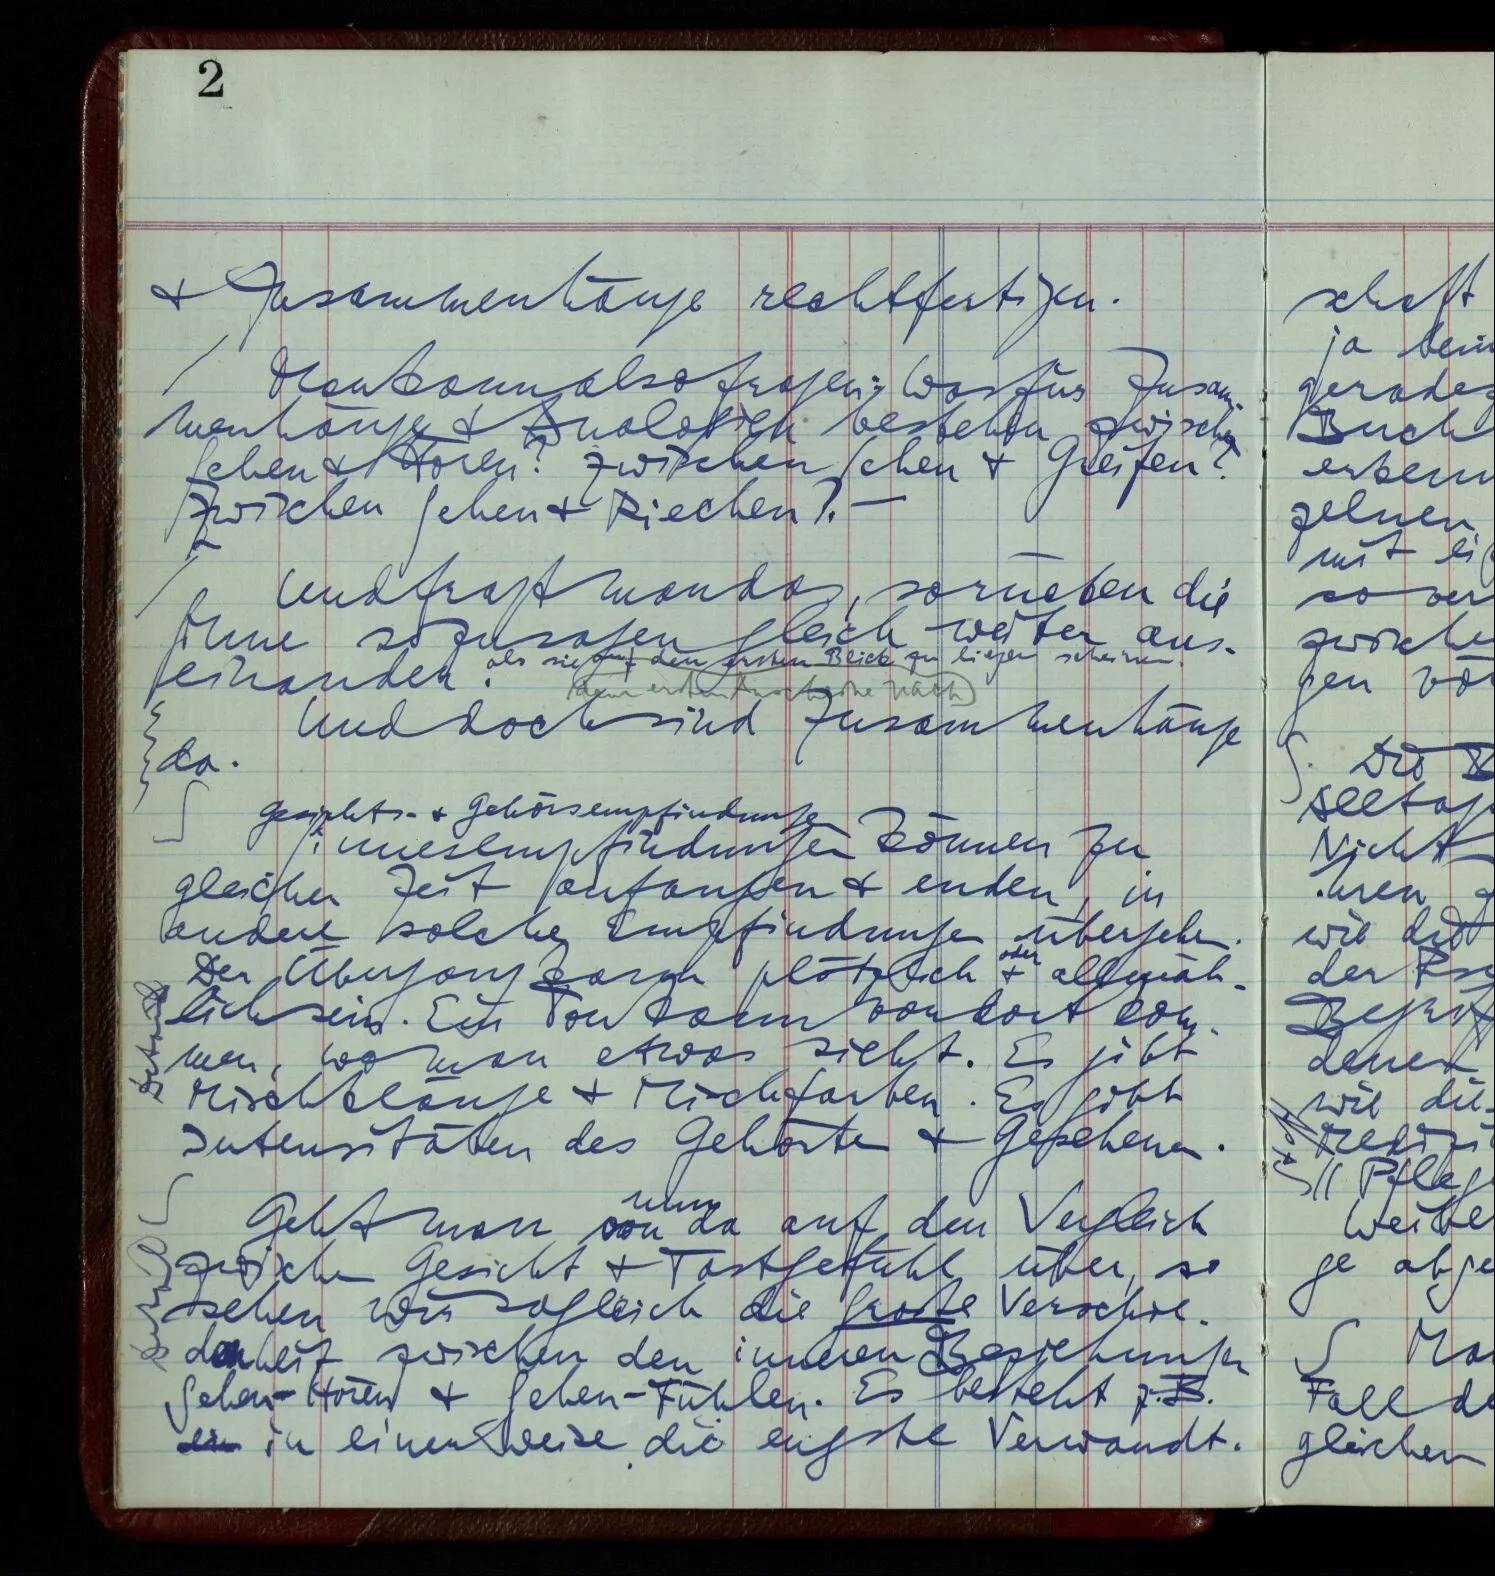 2
& Zusammenhänge rechtfertigen.
/ Man kann also fragen: Was für Zusam-
menhänge & Analogien bestehen zwischen
Sehen & Hören? zwischen Sehen & Greifen?
Zwischen Sehen & Riechen?. —
/ Und fragt man das, so rücken die
Sinne sozusagen gleich weiter aus-
einander, als sie auf den ersten Blick zu liegen scheinen.
(dem ersten Anscheine nach)
Und doch sind Zusammenhänge
da.
Gesichts- & Gehörsempfindungen
Sinnesempfindungen können zu
gleicher Zeit anfangen & enden, in
andere solche Empfindungen übergehen.
Der Übergang kann plötzlich & oder allmäh-
lich sein. Ein Ton kann von dort kom-
men, wo man etwas sieht. Es gibt
Mischklänge & Mischfarben. Es gibt
Intensitäten des Gehörten & Gesehenen.
Geht man nun von da auf den Vergleich
zwischen Gesicht & Tastgefühl über, so
sehen wir sogleich die große Verschie-
denheit zwischen den inneren Beziehungen
Sehen-Hören & Sehen-Fühlen. Es besteht z.B.
in einer Weise die engste Verwandt-
schaft
ja
Buch
zelnen
mit
so
gen
Nicht
wie
der
denen
wie die
// Pflege
ge
Fall
gleichen